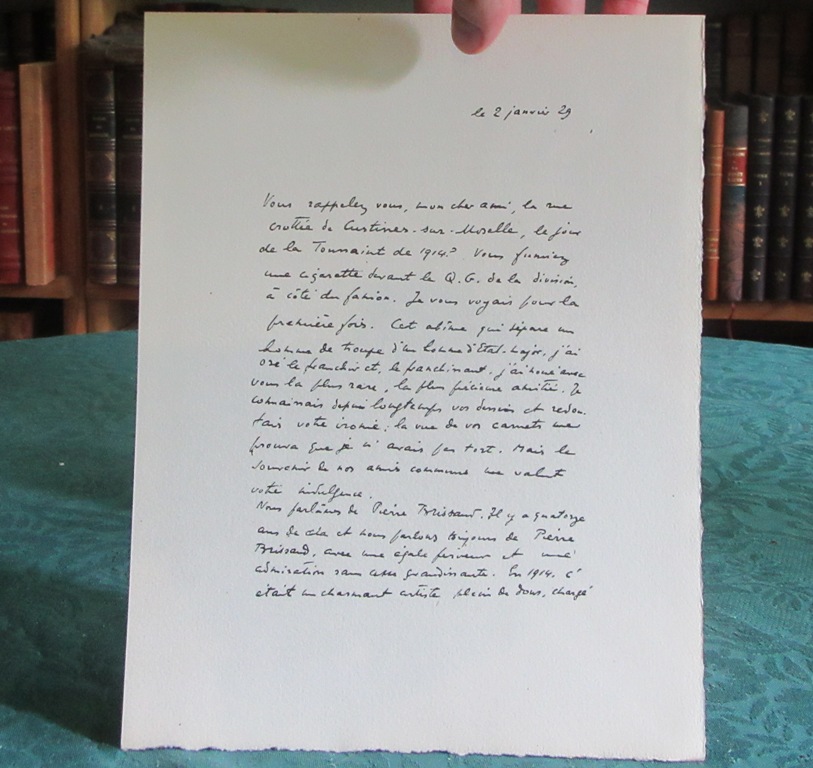 le 2 janvier 29
Vous rappelez vous, mon cher ami, la rue
crottée de Custines-sur-Moselle, le jour
de la Toussaint de 1914? Vous fumiez
une cigarette devant le Q.G. de la division,
à côté du fanion. Je vous voyais pour la
première fois. Cet abîme qui sépare un
homme de troupe d'un homme d'Etat-major, j'ai
osé le franchir et, le franchissant, j'ai noué avec
vous la plus rare, la plus précieuse amitié. Je
connaissais depuis longtemps vos dessins et redou-
tais votre ironie: la vue de vos carnets me
prouva que je n'avais pas tort. Mais le
souvenir de nos amis communs me valut
votre indulgence.
Nous parlâmes de Pierre Brissaud. Il y a quatorze
ans de cela et nous parlons toujours de Pierre
Brissaud, avec une égale ferveur et une
admiration sans cesse grandissante. En 1914, c'
était un charmant artiste, plein de dons, chargé